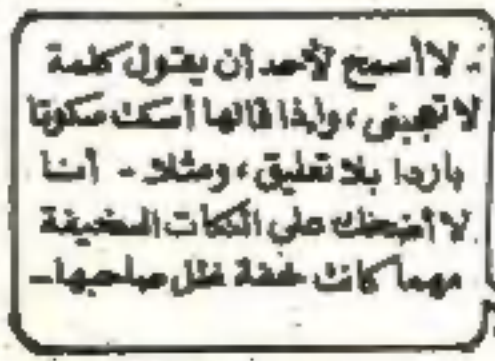 - لا أسمح لأحد أن يقول كلمة
لا تعجبنى، وإذا قالها أسكت سكوتا
باردا بلا تعليق، ومثلا - أنا
لا أضحك على النكات السخيفة
مهما كانت خفة ظل صاحبها -